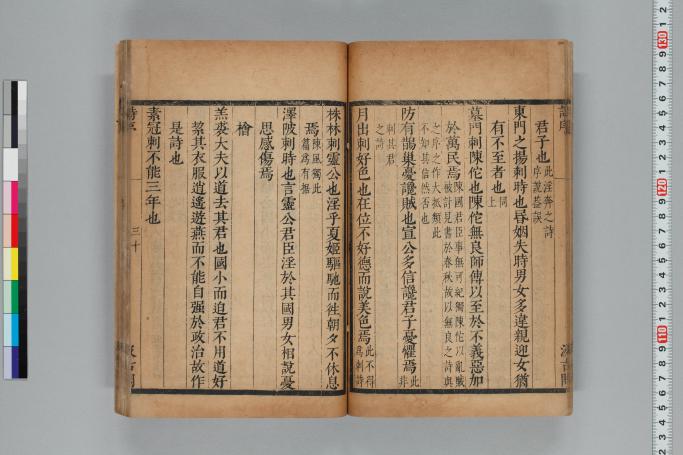 君子也此淫奔之詩序說蓋誤
東門之楊刺時也昏姻失時男女多違親迎女猶
有不至者也同上
墓門刺陳佗也陳佗無良師傅以至於不義惡加
於萬民焉陳國君臣事無可紀獨陳佗以亂賊被討見書於春秋故以無良之詩與
之序之作大抵類此不知其信然否也
防有鵲巢憂讒賊也宣公多信讒君子憂懼焉此非
刺其君之詩
月出刺好色也在位不好德而說美色焉此不得為刺詩
株林刺靈公也淫乎夏姬驅馳而往朝夕不休息
焉陳風獨此篇為有據
澤陂刺時也言靈公君臣淫於其國男女相說憂
思感傷焉
檜
羔裘大夫以道去其君也國小而迫君不用道好
絜其衣服逍遙遊燕而不能自强於政治故作
是詩也
素冠刺不能三年也
詩序
三十
汲古閣